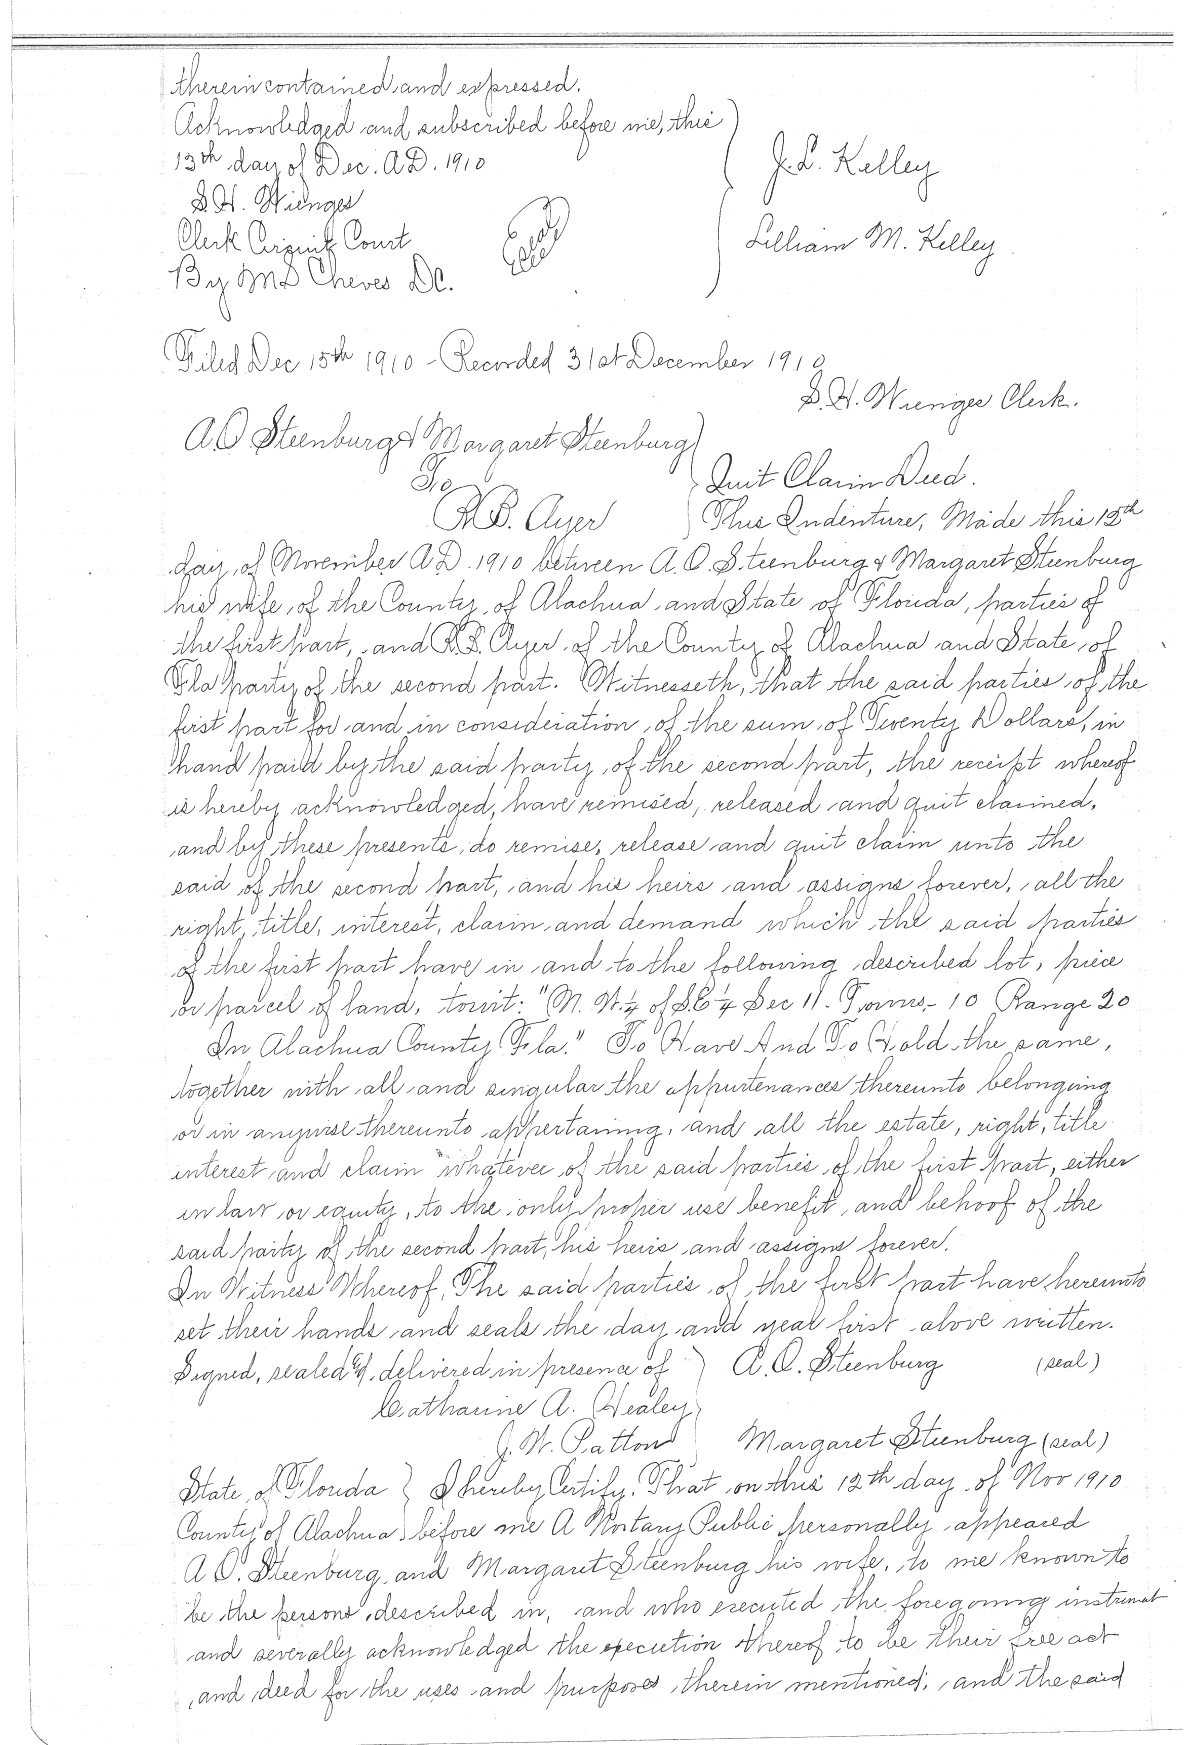 therein contained and expressed.
Acknowledged and subscribed before me, this
13th day of Dec. A.D. 1910
J. L. Kelley
S. H. Wienges
Clerk Circuit Court
Lilliam M. Kelley
By M D Cheves D.C.
Filed Dec 15th 1910 - Recorded 31st December 1910
S. H. Wienges Clerk.
A. O Steenburg & Margaret Steenburg
To
Quit Claim Deed.
R B. Ayer
This Indenture, Made this 12th
day of November A D. 1910 between A. O. Steenburg & Margaret Steenburg
his wife, of the County of Alachua and State of Florida, parties of
the first part, and R. B. Ayer of the County of Alachua and State of
Fla party of the second part. Witnesseth, that the said parties of the
first part for and in consideration of the sum of Twenty Dollars, in
hand paid by the said party of the second part, the receipt whereof
is hereby acknowledged, have remised, released and quit claimed,
and by these presents do remise, release and quit claim unto the
said of the second part, and his heirs and assigns forever, all the
right, title, interest, claim and demand which the said parties
of the first part have in and to the following described lot, piece
or parcel of land, towit: "N. W. ¼ of S. E ¼ Sec 11 - Towns - 10 Range 20
In Alachua County Fla." To Have And To Hold the same,
together with all and singular the appurtenances thereunto belonging
or in anywise thereunto appertaining, and all the estate, right, title
interest and claim whatever of the said parties of the first part, either
in law or equity, to the only proper use benefit and behoof of the
said party of the second part, his heirs and assigns forever.
In Witness Whereof, The said parties of the first part have hereunto
set their hands and seals the day and year first above written.
Signed, sealed & delivered in presence of A. O. Steenburg (seal)
Catharine A. Healey
J. W. Patton Margaret Steenburg (seal)
State of Florida I hereby Certify, That on this 12th day of Nov 1910
County of Alachua before me A Nortary Public personally appeared
A O. Steenburg and Margaret Steenburg his wife, to me known to
be the persons described in, and who executed the foregoing instrumat
and severally acknowledged the execution thereof to be their free act
and deed for the uses and purposes therein mentioned; and the said